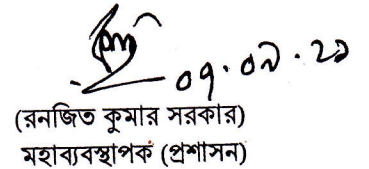 ০৭.০৯.২১
(রনজিত কুমার সরকার)
মহাব্যবস্থাপক (প্রশাসন)